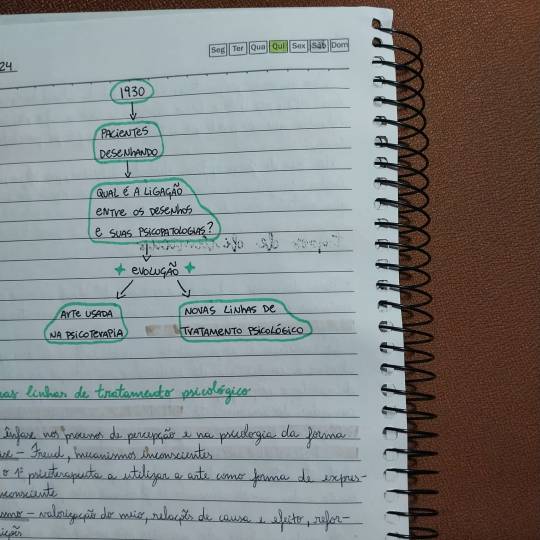 Seg Ter Qua Qui Sex Sáb Dom
24
1930
PACIENTES
DESENHANDO
QUAL É A LIGAÇÃO
ENTRE OS DESENHOS
E SUAS PSICOPATOLOGIAS?
EVOLUÇÃO
ARTE USADA
NA PSICOTERAPIA
NOVAS LINHAS DE
TRATAMENTO PSICOLÓGICO
as linhas de tratamento psicológico
ênfase nos processos de percepção e na psicologia da forma
- Freud, mecanismos inconscientes
o 1º psicoterapeuta a utilizar a arte como forma de expres-
inconsciente
- valorização do meio, relações de causa e efeito, refor-